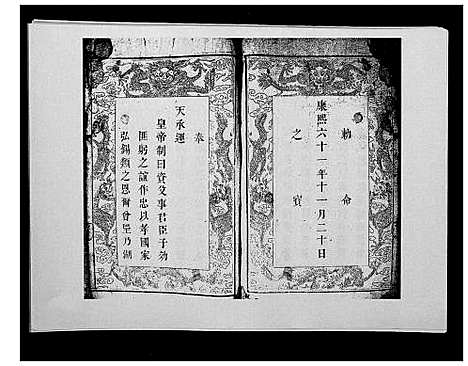 勅命
康熙六十一年十一月二十日
之寳
奉
天承運
皇帝制曰資父事君臣子効
匪躬之誼作忠以孝國家
弘錫類之恩爾曾𡊮乃湖